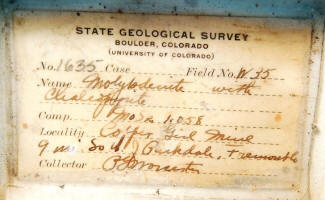 STATE GEOLOGICAL SURVEY
BOULDER, COLORADO
(UNIVERSITY OF COLORADO)
No. 1635 Case Field No. W 35
Name Molybdenite with
Chalcopyrite
Comp.
Locality Copper Girl Mine
9 mi. So. Parkdale, Fremont Co
Collector P G Worcester